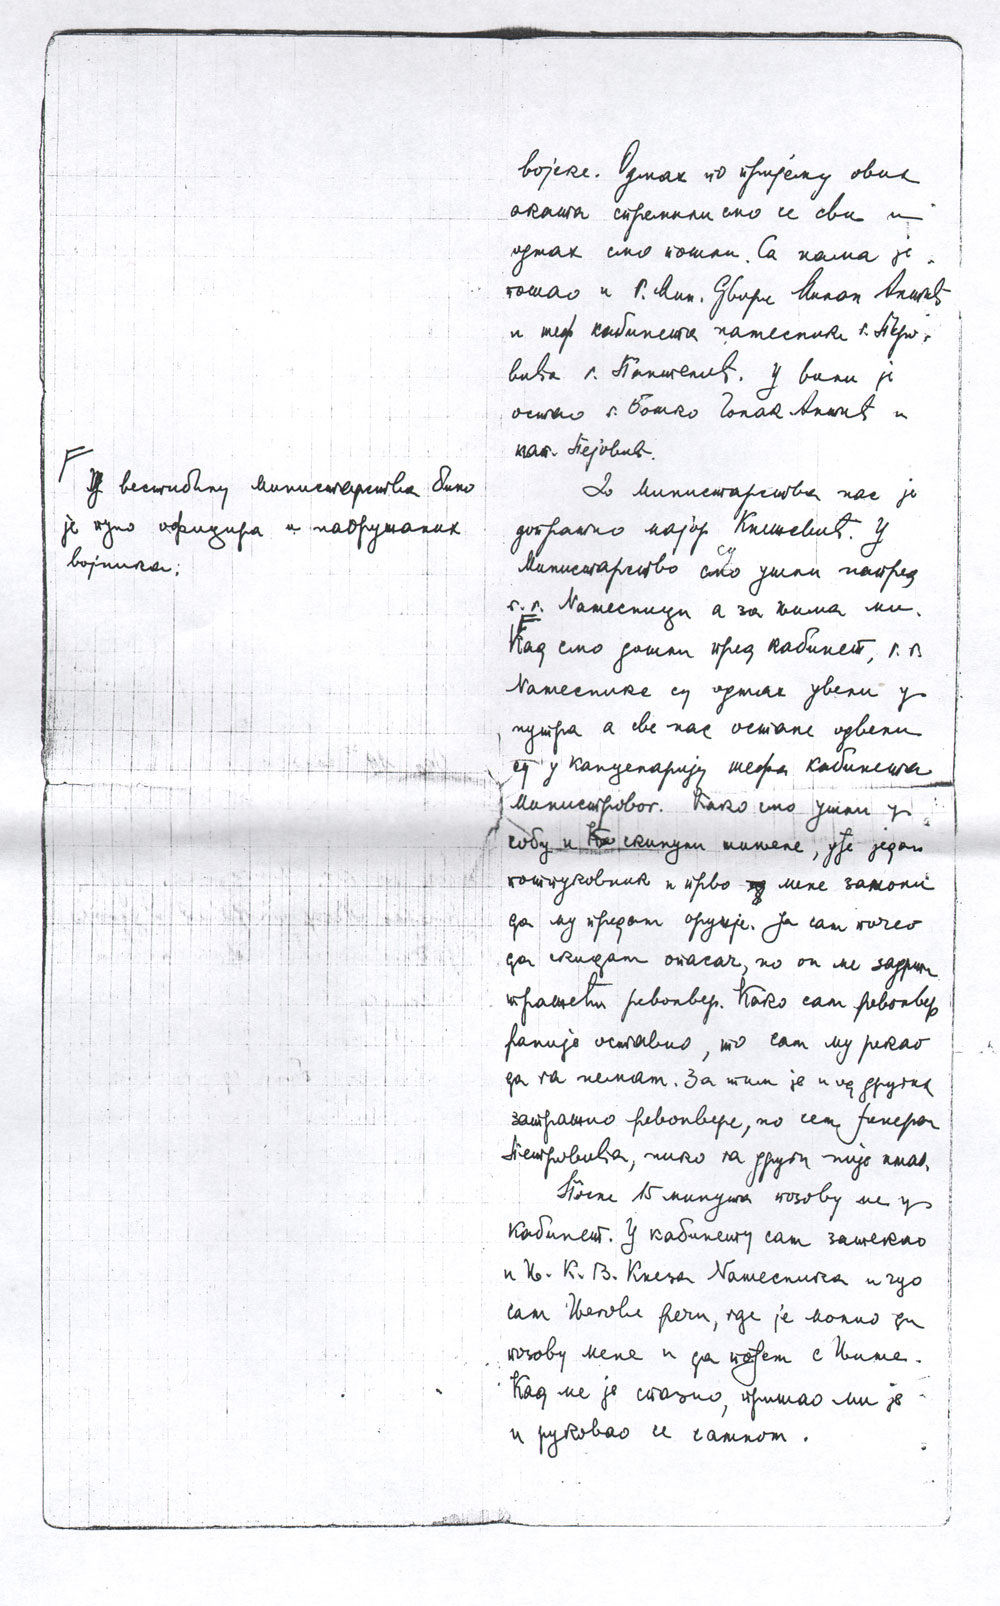 војске. Одмах по пријему ових
аката спремили смо се сви и
одмах смо пошли. Са нама је
пошао и г. Мин. Двора Милан Антић
и шеф кабинета намесника г. Перо-
вића г. Пантелић. У вили је
остао г. Бошко Чолак Антић и
кап. Пејовић.
До министарства нас је
допратио мајор Кнежевић. У
Министарство смо су ушли напред
г.г. Намесници а за њима ми.
F
Кад смо дошли пред кабинет, г. г.
Намеснике су одмах увели у
нутра а све нас остале одвели
су у канцеларију шефа кабинета
министровог. Како смо ушли у
собу и скинули шињеле, уђе један
потпуковник и прво мене замоли
да му предам оружје. Ја сам почео
да скидам опасач, но он ме задржи
тражећи револвер. Како сам револвер
раније оставио, то сам му рекао
да га немам. За тим је и од других
затражио револвере, но сем ђенерала
Петровића, нико га други није имао.
После 15 минута позову ме у
кабинет. У кабинету сам затекао
и Њ. К. В. Кнеза Намесника и чуо
сам Његове речи, где је молио да
позову мене и да пођем с Њиме.
Кад ме је спазио, пришао ми је
и руковао се самном.
F
У вестибилу министарства било
је пуно официра и наоружаних
војника.